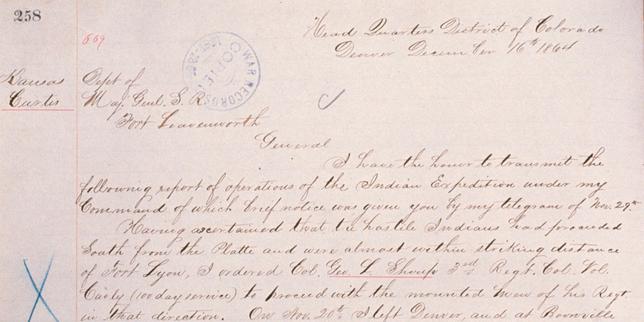 258
869
Head Quarters District of Colorado
Denver December 16th 1864
WAR RECORDS
Kansas
Curtis
Dept of
Maj. Genl. S. R.
Fort Leavenworth
General
I have the honor to transmit the
following report of operations of the Indian Expedition under my
Command of which brief notice was given you by my telegram of Nov. 29th
Having ascertained that the hostile Indians had proceeded
South from the Platte and were almost within striking distance
of Fort Lyon, I ordered Col. Geo L Shoup 3rd Regt. Col. Vol.
Cavly (100 day service) to proceed with the mounted men of his Regt
in that direction. On Nov. 20th I left Denver, and at Boonville